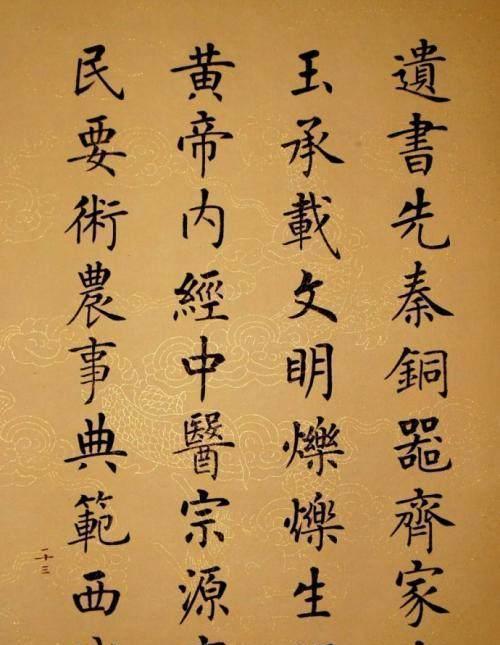 遺書先秦銅器齊家
玉承載文明爍爍生
黄帝内經中醫宗源
民要術農事典範西
二十三